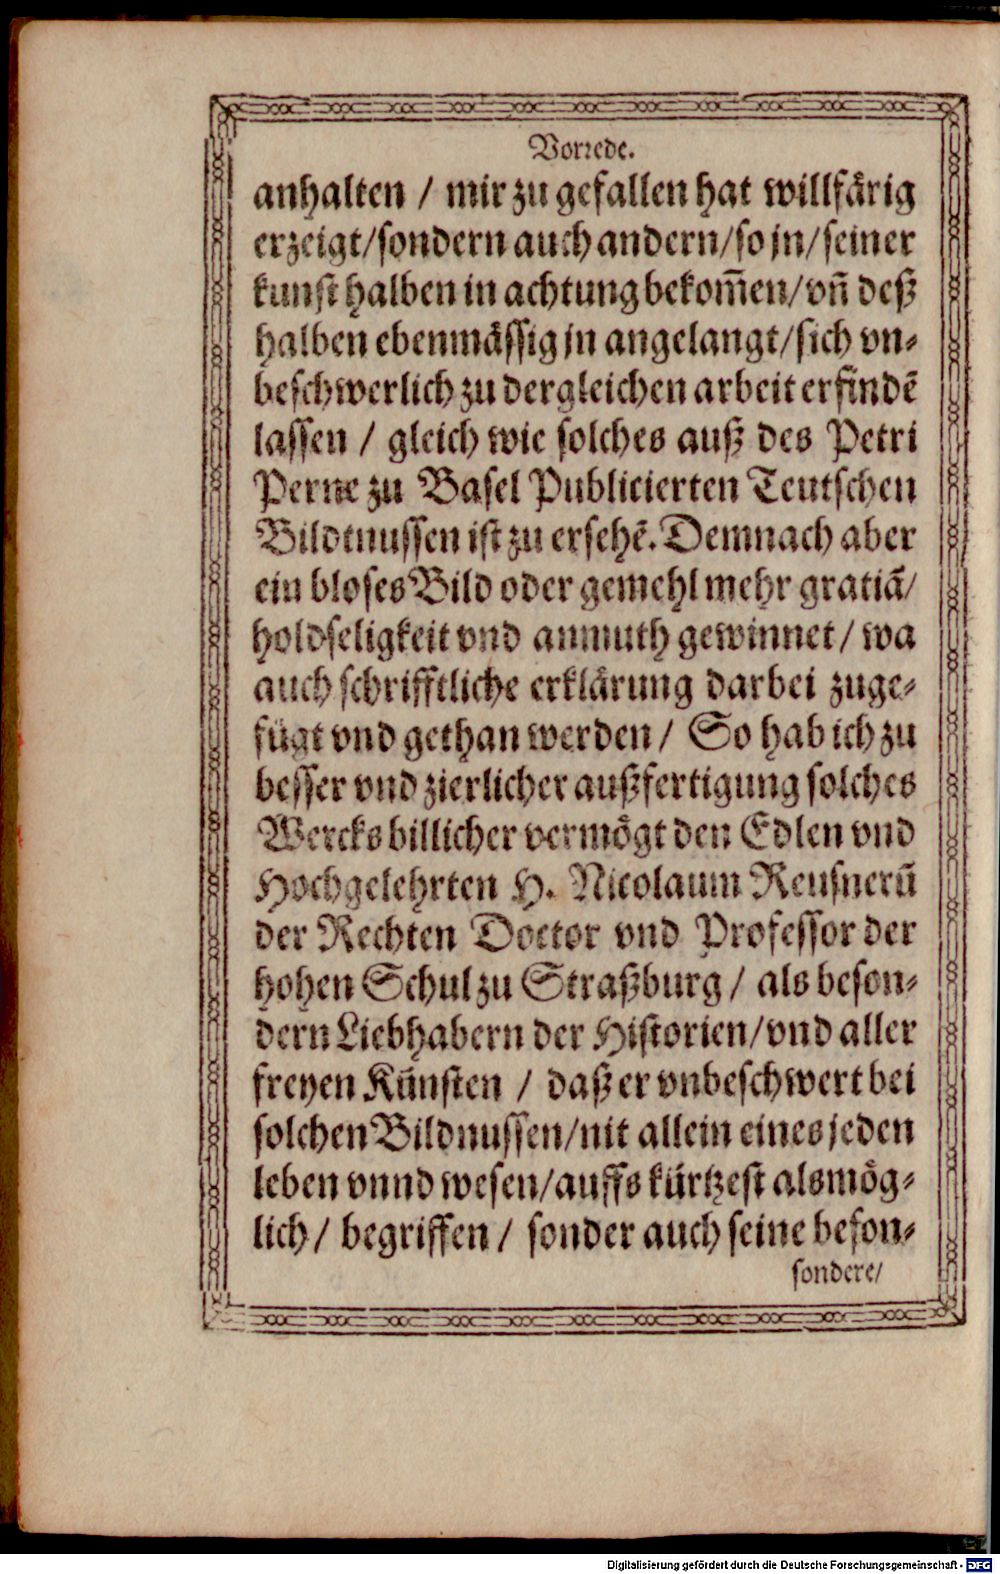 Vorrede.
anhalten / mir zu gefallen hat willfärig
erzeigt/sondern auch andern/so jn/seiner
kunst halben in achtung bekom̄en/vn̄ deß
halben ebenmässig jn angelangt/sich vn-
beschwerlich zu dergleichen arbeit erfindē
lassen / gleich wie solches auß des Petri
Perne zu Basel Publicierten Teutschen
Bildtnussen ist zu ersehē. Demnach aber
ein bloses Bild oder gemehl mehr gratiā/
holdseligkeit vnd anmuth gewinnet / wa
auch schrifftliche erklärung darbei zuge-
fügt vnd gethan werden / So hab ich zu
besser vnd zierlicher außfertigung solches
Wercks billicher vermögt den Edlen vnd
Hochgelehrten H. Nicolaum Reusnerū
der Rechten Doctor vnd Professor der
hohen Schul zu Straßburg / als beson-
dern Liebhabern der Historien/vnd aller
freyen Künsten / daß er vnbeschwert bei
solchen Bildnussen/nit allein eines jeden
leben vnnd wesen/auffs kürtzest als mög-
lich / begriffen / sonder auch seine beson-
sondere/
Digitalisierung gefördert durch die Deutsche Forschungsgemeinschaft - DFG